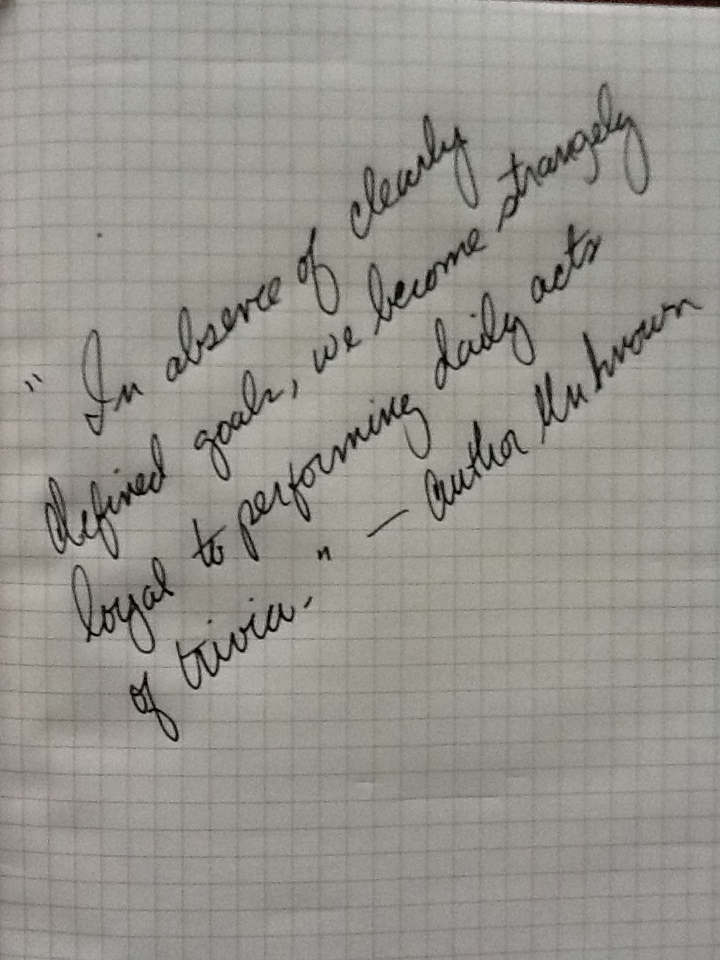 " In absence of clearly
defined goals, we become strangely
loyal to performing daily acts
of trivia." — Author Unknown